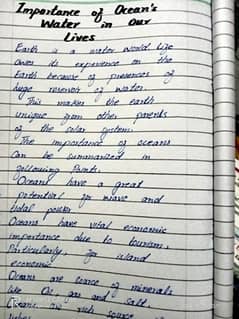 Importance of Ocean's
Water in Our
Lives
Earth is a water world. Life
owes its experience on the
Earth because of presences of
huge resrvoir of water.
This makes the earth
unique from other parents
of the solar system.
The importance of oceans
Can be summarized in
following Points.
Oceans have a great
potential in wave and
tidal power
Oceans have vital economic
importance due to tourism,
Particularly, for island
economic
Oceans are soarce of minerals
like Oil gas and salt
Oceans are rich source of